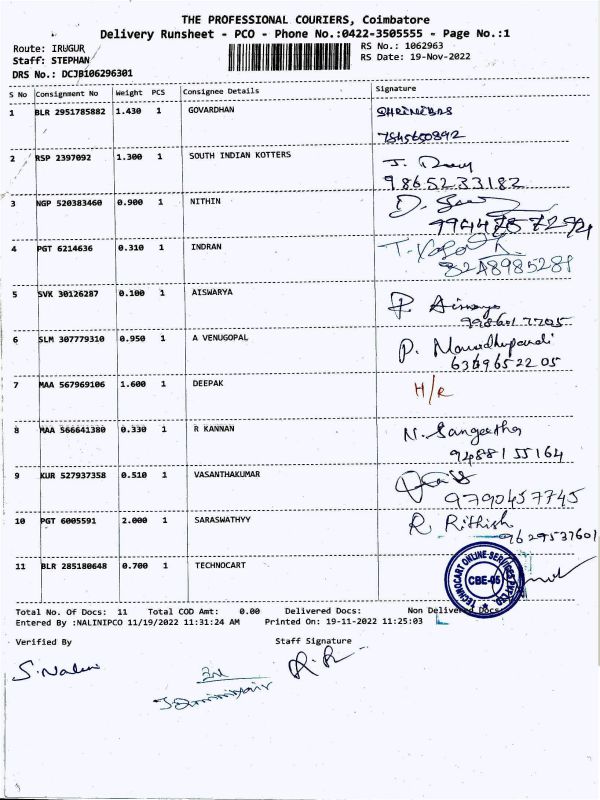 THE PROFESSIONAL COURIERS, Coimbatore
Delivery Runsheet - PCO - Phone No.:0422-3505555 - Page No.:1
Route: IRUGUR
RS No.: 1062963
Staff: STEPHAN
RS Date: 19-Nov-2022
DRS No.: DCJB106296301
S No Consignment No Weight PCS Consignee Details Signature
1 BLR 2951785882 1.430 1 GOVARDHAN SHRINIBAS
7845650892
2 RSP 2397092 1.300 1 SOUTH INDIAN KOTTERS J.
9865233182
3 NGP 520383460 0.900 1 NITHIN D.
4 PGT 6214636 0.310 1 INDRAN T.
8248985289
5 SVK 30126287 0.100 1 AISWARYA
9986017705
6 SLM 307779310 0.950 1 A VENUGOPAL P.
6369652205
7 MAA 567969106 1.600 1 DEEPAK H/R
8 MAA 566641380 0.330 1 R KANNAN N. Sangeetha
9488155164
9 KUR 527937358 0.510 1 VASANTHAKUMAR
9790457745
10 PGT 6005591 2.000 1 SARASWATHYY R. Rithish
9629537601
11 BLR 285180648 0.700 1 TECHNOCART
TECHNOCART ONLINE SERVICES PVT LTD
CBE-05
Total No. Of Docs: 11 Total COD Amt: 0.00 Delivered Docs: Non Delivered Docs
Entered By :NALINIPCO 11/19/2022 11:31:24 AM Printed On: 19-11-2022 11:25:03
Verified By Staff Signature
S. Nalini
R.R